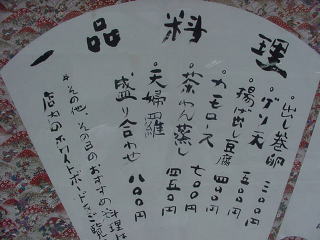 一品料理
・出し巻卵 三〇〇円
・ゲソ天 三五〇円
・揚げ出し豆腐 四〇〇円
・カモロース 七〇〇円
・茶わん蒸し 四五〇円
・天婦羅
盛り合わせ 八〇〇円
＊その他、その日のおすすめ料理は
店内のホワイトボードをご覧